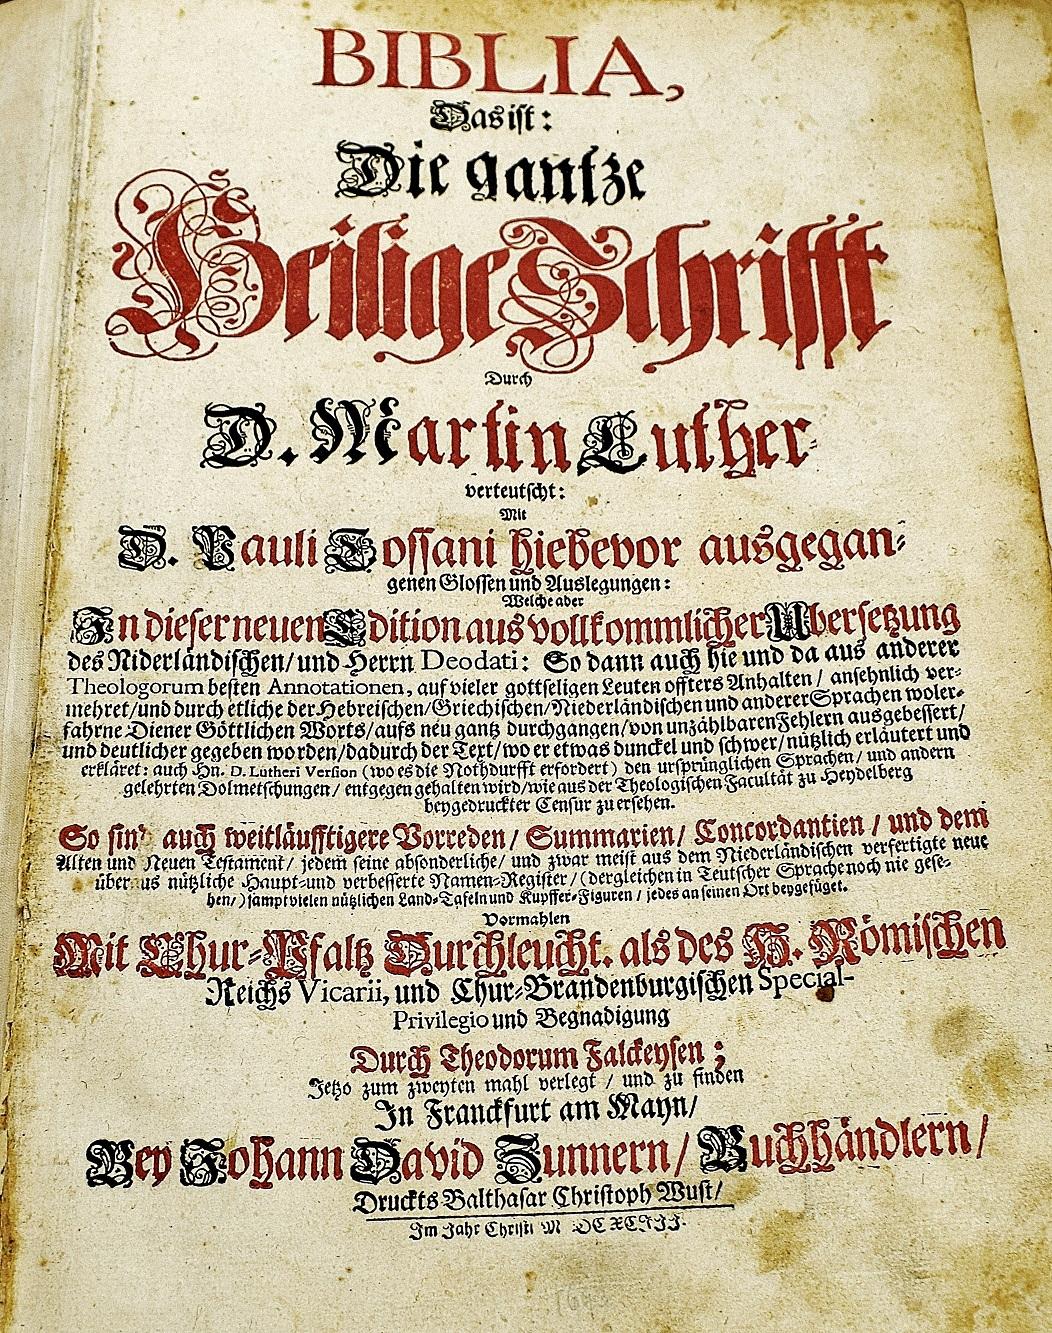 BIBLIA,
Das ist:
Die gantze
Heilige Schrifft
Durch
D. Martin Luther
verteutscht:
Mit
D. Pauli Tossani hiebevor ausgegan-
genen Glossen und Auslegungen:
Welche aber
In dieser neuen Edition aus vollkommlicher Ubersetzung
des Niderländischen/ und Herrn Deodati: So dann auch hie und da aus anderer
Theologorum besten Annotationen, auf vieler gottseligen Leuten offters Anhalten / ansehnlich ver-
mehret/ und durch etliche der Hebreischen/ Griechischen/ Niederländischen und anderer Sprachen woler-
fahrne Diener Göttlichen Worts/ aufs neu gantz durchgangen/ von unzählbaren Fehlern ausgebessert/
und deutlicher gegeben worden/ dadurch der Text/ wo er etwas dunckel und schwer/ nützlich erläutert und
erkläret: auch Hn. D. Lutheri Version (wo es die Nothdurfft erfordert) den ursprünglichen Sprachen/ und andern
gelehrten Dolmetschungen/ entgegen gehalten wird/ wie aus der Theologischen Facultät zu Heydelberg
beygedruckter Censur zu ersehen.
So sind auch weitläufftigere Vorreden/ Summarien/ Concordantien / und dem
Alten und Neuen Testament/ jedem seine absonderliche/ und zwar meist aus dem Niederländischen verfertigte neue
überaus nützliche Haupt- und verbesserte Namen-Register/ (dergleichen in Teutscher Sprache noch nie gese-
hen/) sampt vielen nützlichen Land-Tafeln und Kupffer-Figuren / jedes an seinen Ort beygefüget.
Vormahlen
Mit Chur-Pfaltz Durchleucht. als des H. Römischen
Reichs Vicarii, und Chur-Brandenburgischen Special-
Privilegio und Begnadigung
Durch Theodorum Falckeysen;
Jetzo zum zweyten mahl verlegt / und zu finden
In Franckfurt am Mayn/
Bey Johann David Zunnern/ Buchhändlern/
Druckts Balthasar Christoph Wust/
Im Jahr Christi